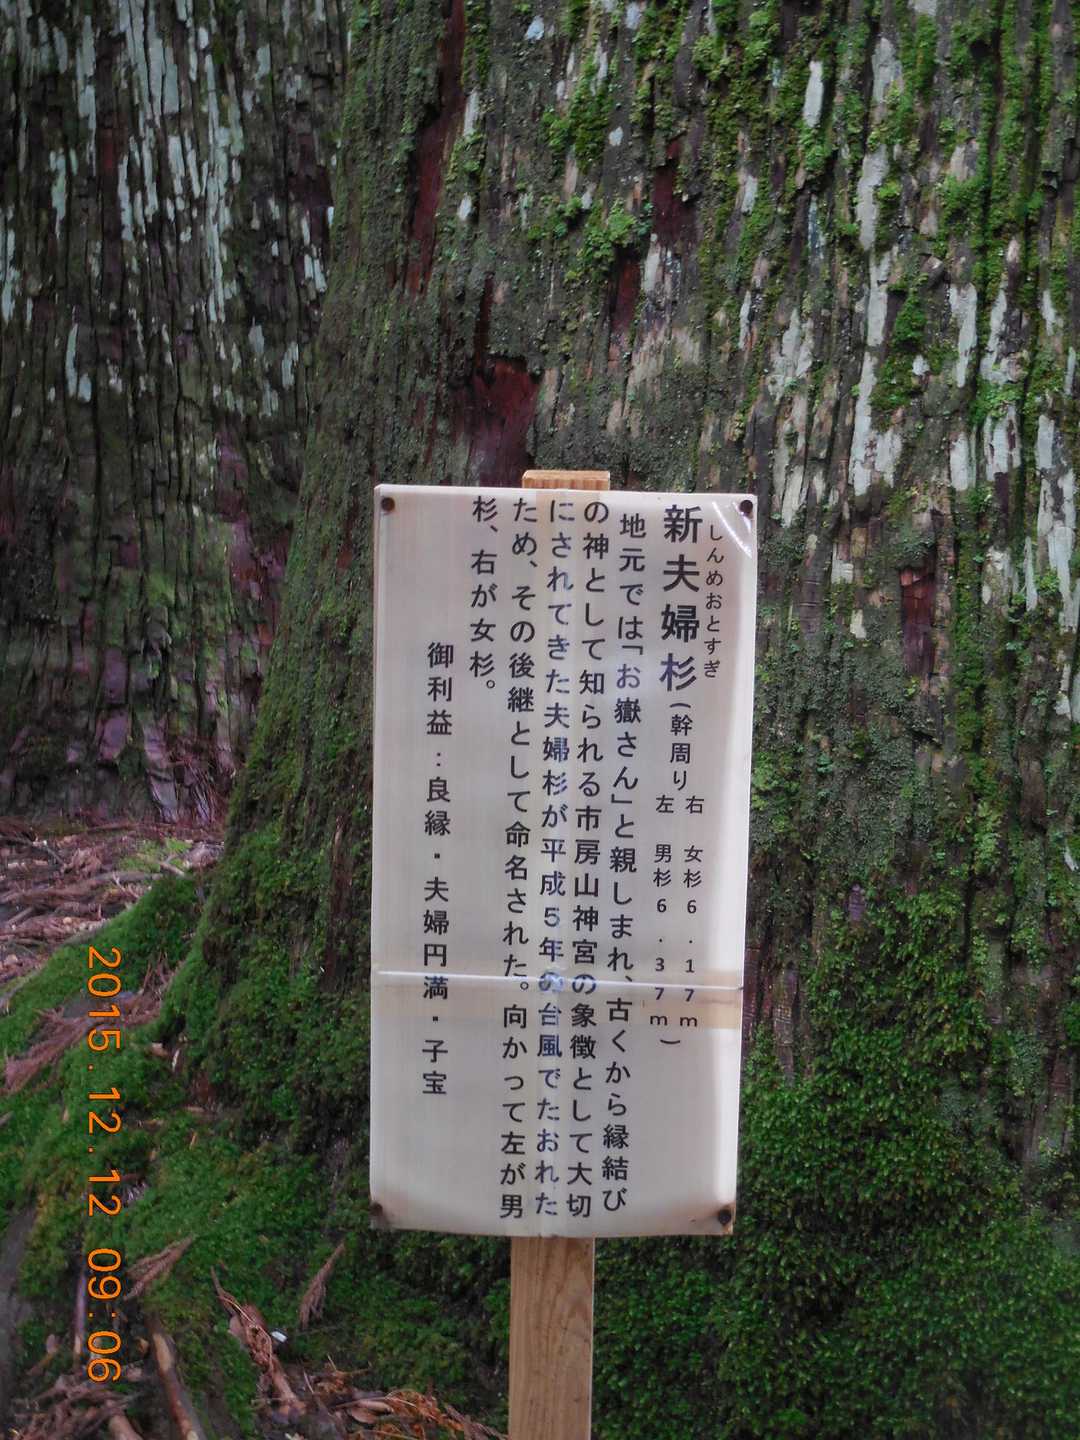 しんめおとすぎ
新夫婦杉(幹周り 右 女杉6.17m
左 男杉6.37m)
地元では「お嶽さん」と親しまれ、古くから縁結び
の神として知られる市房山神宮の象徴として大切
にされてきた夫婦杉が平成5年の台風でたおれた
ため、その後継として命名された。向かって左が男
杉、右が女杉。
御利益:良縁・夫婦円満・子宝
2015.12.12 09:06